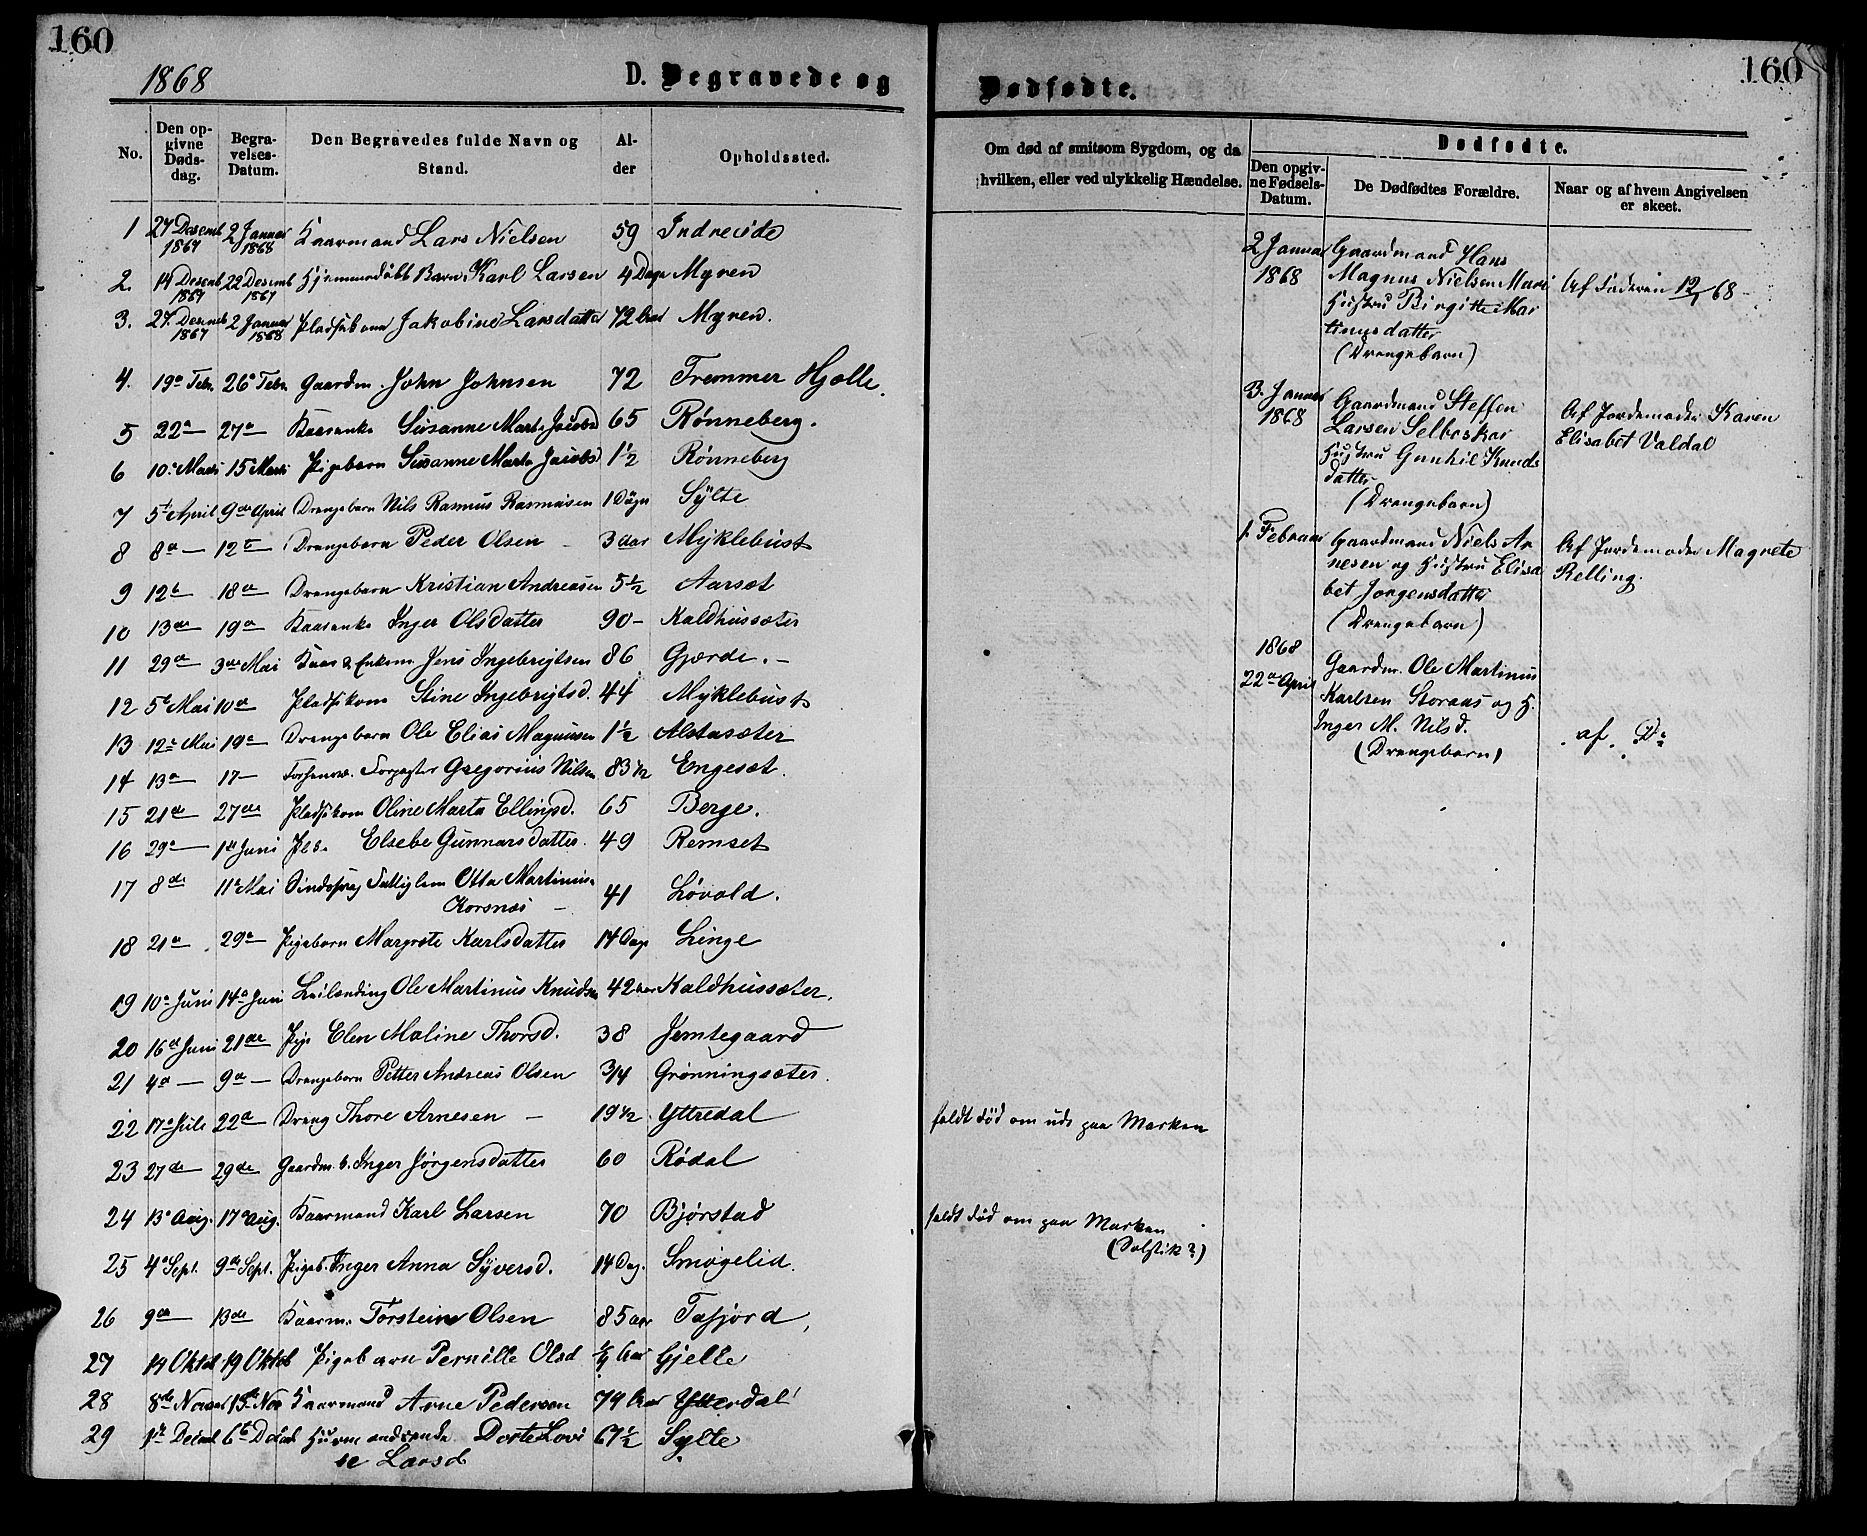 160
160
1868
D. Begravede og
Dødfødte.
No.
Den opgivne Dødsdag.
Begravelses-Datum.
Den Begravedes fulde Navn og Stand.
Alder
Opholdssted.
Om død af smitsom Sygdom, og da hvilken, eller ved ulykkelig Hændelse.
Dødfødte.
Den opgivne Fødsels-Datum.
De Dødfødtes Forældre.
Naar og af hvem Angivelsen er skeet.
1 27 Desemb 1867 2 Januar 1868 Kaarmand Lars Nielsen 59 Indreide
2. 14 Desemb 1867 22 Desemb 1867 Hjemmedøbt Barn Karl Larsen 4 Dage Myren
3. 27. Desemb 1867 2 Januar 1868 Pladsk Jakobine Larsdatter 72 Aar Myren.
4. 19de Febr. 26de Febr. Gaardm. John Johnsen 72 Tremmer Hjelle.
5 22de 27de Kaarenke Susanne Marta Jacobsd 65 Rønneberg.
6 10de Marts 15 Marts Pigebarn Susanne Marta Jacobsd 1½ Rønneberg
7 5te April 9de April Drengebarn Nils Rasmus Rasmusen 1 Døgn Sylte
8 8de — 12te Drengebarn Peder Olsen - 3 dar Myklebust
9 12te 18de Drengebarn Kristian Andreasen 5½ Aarset
10 13de 19de Kaarenke Inger Olsdatter 90- Kaldhussæter
11 29de 3de Mai Kaar & Enkem. Jens Ingebrigtsen 86 Gjærde. -
12 5te Mai 10de Pladskone Stine Ingebrigtsd. 44 Myklebust
13 12te Mai 19de Drengebarn Ole Elias Magnusen 1½ Alstasæter
14 13de 17- Gregorius Nilsen 83 1/2 Engeset.
15 21de 27de Pladskone Oline Marta Ellingsd. 65 Berge.
16 29de 1ste Juni Elsebe Gunnarsdatter. 49 Remset
17 8de 11te Mai Sindssvag Fattiglem Otto Martinus
Korsnes - 41 Løvold.
18 21de 29de Pigebarn Margrete Karlsdatter 14 Dage Linge
19 10de Juni 14de Juni Leilending Ole Martinus Knudsen 42 aar Kaldhussæter.
20 16de Juni 21de Pige Elen Maline Thorsd. 38 Jemtegaard
21 4de — 9de — Drengebarn Petter Andreas Olsen 3/4 Grønningsæter.
22 17de Juli 22de Dreng Thore Arnesen - 19 1/2 Yttredal
faldt død om ude paa Marken
23 27de 29de Gaardm. k. Inger Jørgensdatter 60 Rødal
24 13de Aug. 17de Aug. Kaarmand Karl Larsen 70 Bjørstad
faldt død om paa Marken
(Solstik?)
25 4de Sept. 9de Sept. Pigeb. Inger Anna Syversd. 14 Dag. Smøgelid.
26 9de 13de Kaarm. Torstein Olsen 85 aar Tafjord,
27 14 Oktob 19 Oktob Pigebarn Pernille Olsd Aar Gjelle
28 8de Novem 15de Nov Kaarmand Arne Pedersen 74 Aar Ytterdal
29 1ste Decemb 6te Decemb Dorte Lovi
se Larsd 67½ Sylte
2 Januar
1868
Gaardmand Hans
Magnus Nielsen Mari
Hustru Birgitte Mar
tinusdatter
(Drengebarn)
Af Faderen 12/1 68-
3. Januar
1868
Gaardmand Steffen
Larsen Selboskar
Hustru Gunhil Knuds
datter
(Drengebarn)
Af Jordemoder Karen
Elisabet Valdal
1. Februar
Gaardmand Niels Ar
nesen og Hustru Elisa
bet Jorgensdatter
(Drengebarn)
Af Jordemoder Magnete
Relling.
1868
22de April
Gaardm. Ole Martinus
Karlsen Storaas og H.
Inger M. Nilsd.
(Drengebarn)
af. Do